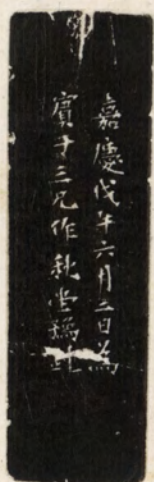 嘉慶戊午六月三日為
賓于三兄作秋堂鴻記